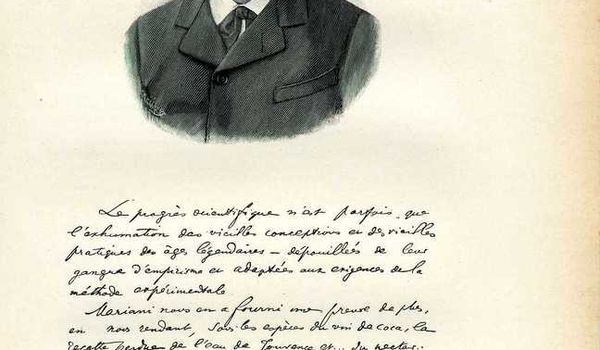 Le progrès scientifique n'est parfois que
l'exhumation des vieilles conceptions et des vieilles
pratiques des âges légendaires — dépouillées de leur
gangue d'empirisme et adaptées aux exigences de la
méthode expérimentale
Mariani nous en a fourni une preuve de plus,
en nous rendant, sous les espèces du vin de coca, la
recette perdue de l'eau de Jouvence et... du nectar.